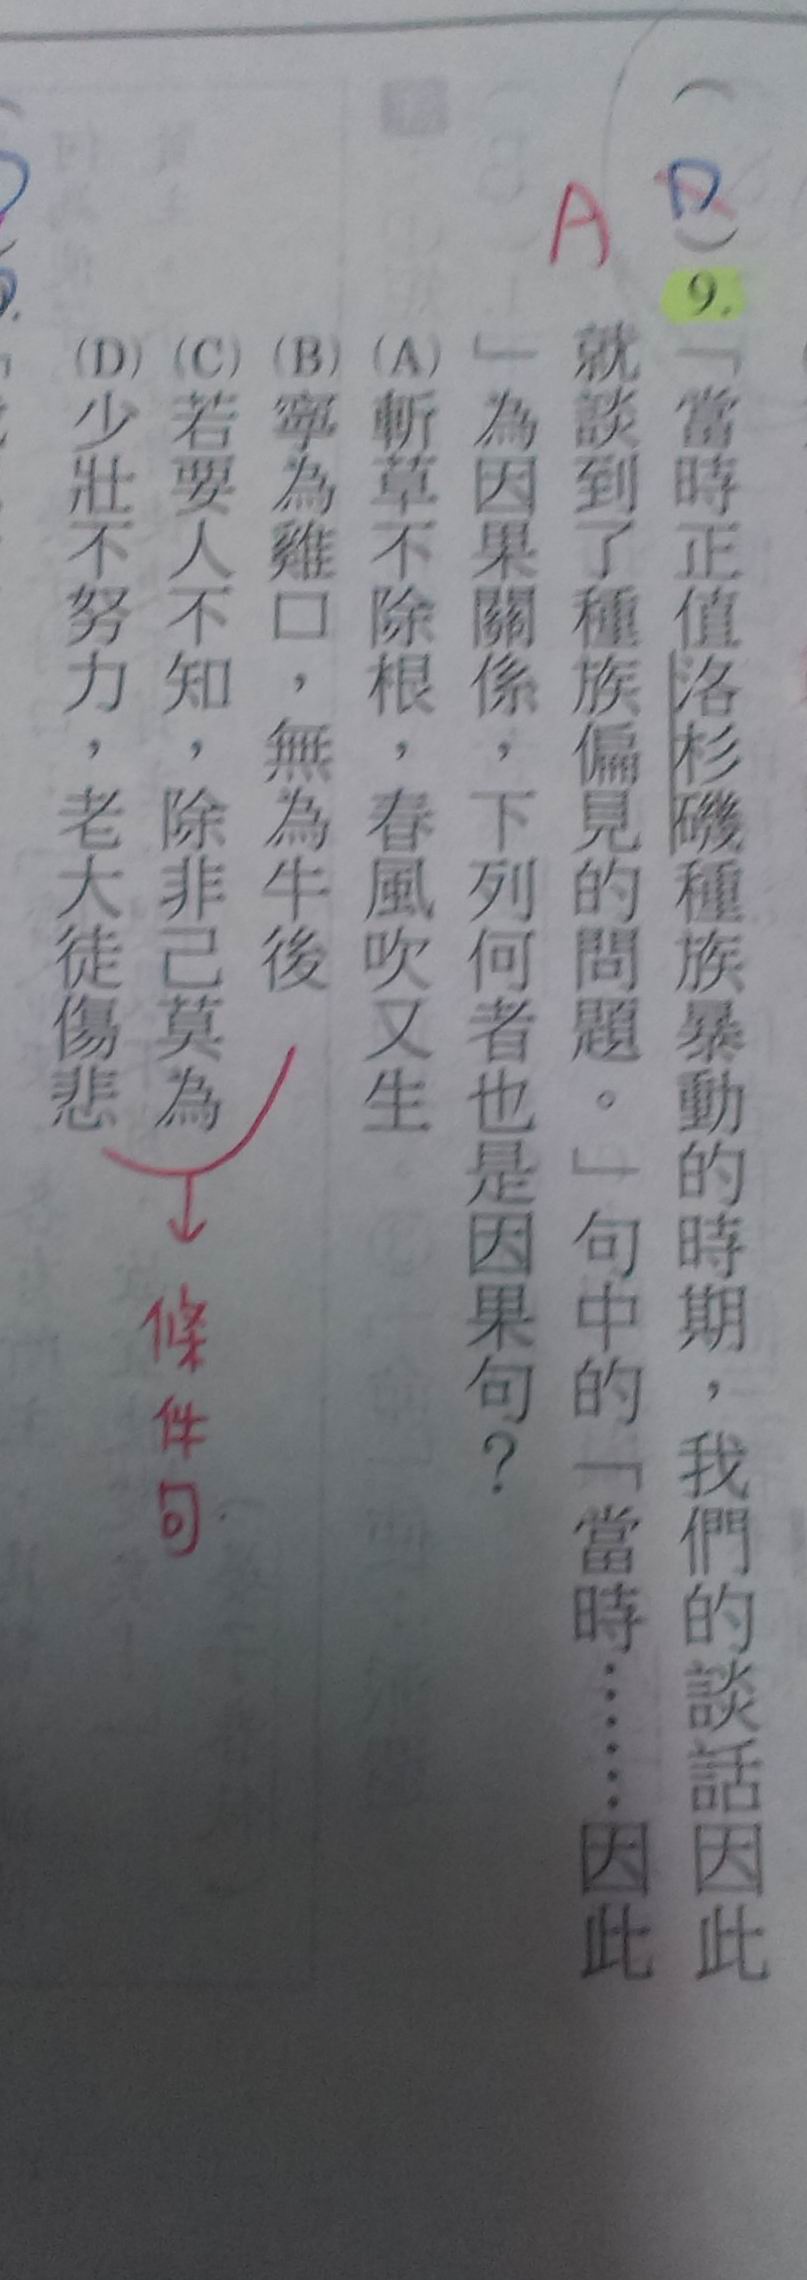 （D）9.「當時正值洛杉磯種族暴動的時期，我們的談話因此
A
就談到了種族偏見的問題。」句中的「當時⋯⋯因此
」為因果關係，下列何者也是因果句？
(A)斬草不除根，春風吹又生
(B)寧為雞口，無為牛後
(C)若要人不知，除非己莫為
(D)少壯不努力，老大徒傷悲
條件句